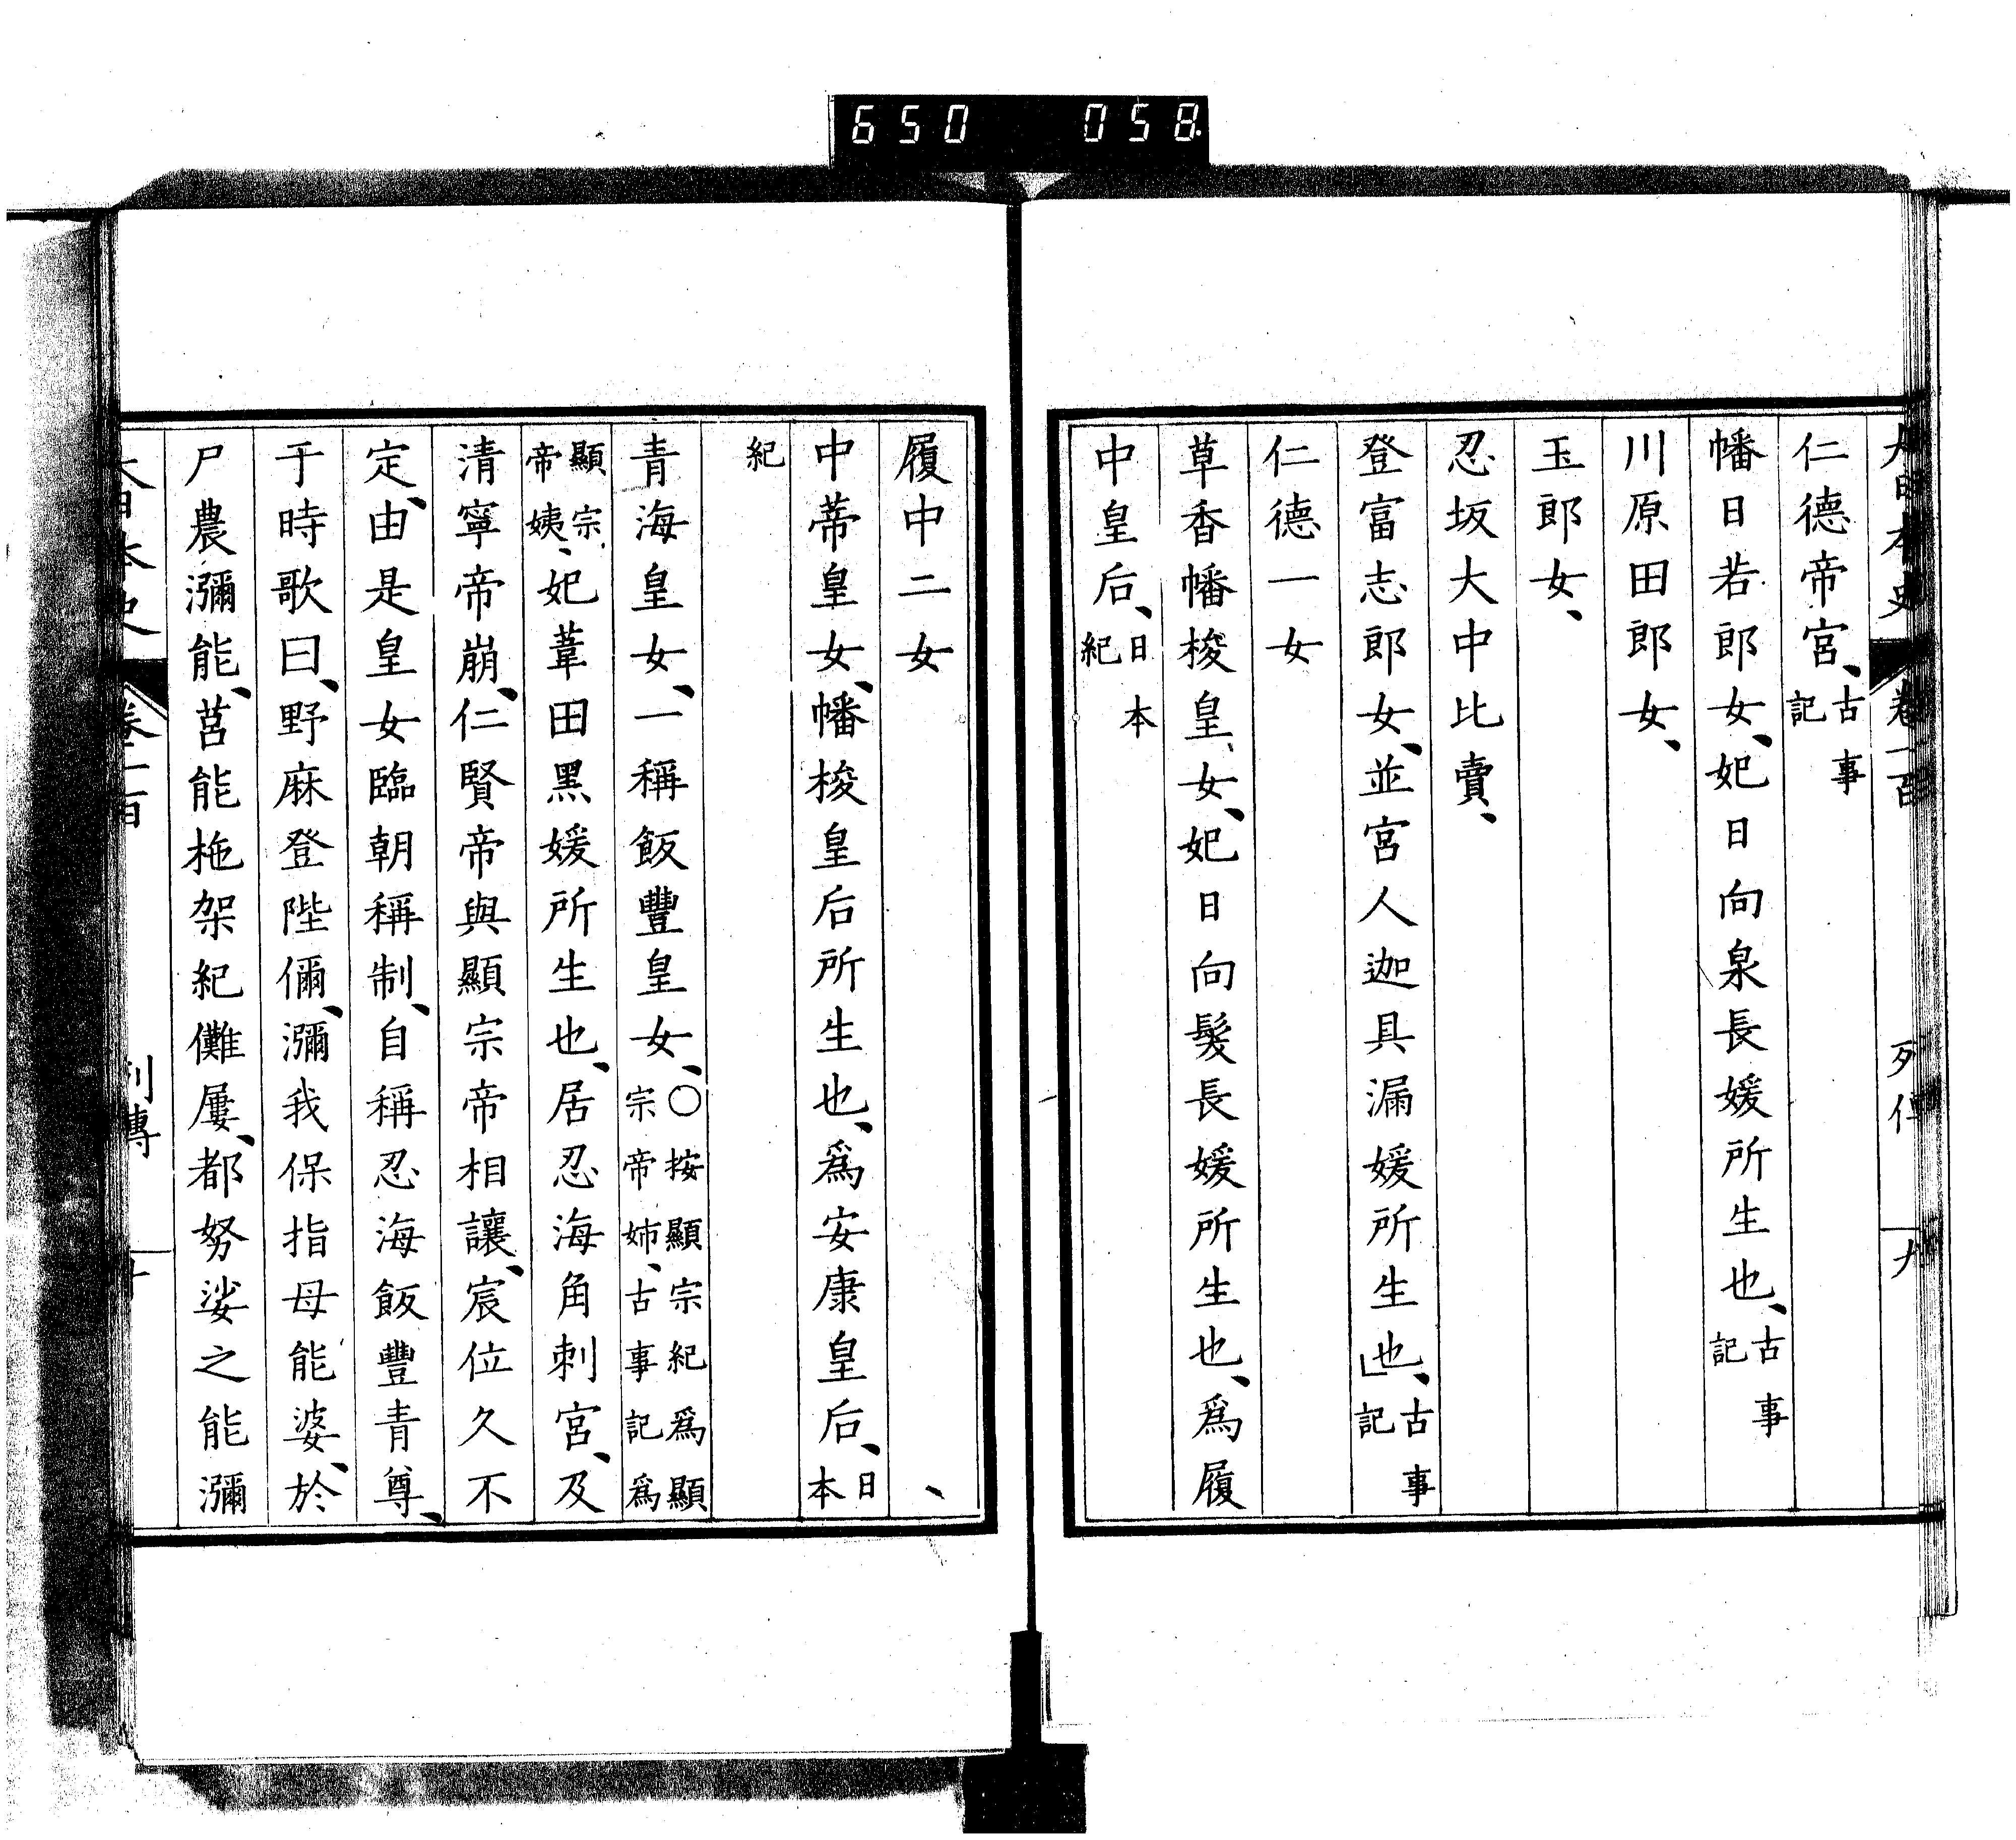 650 058
大日本史 卷一百 列傳 九
仁德帝宮、古事記
幡日若郎女、妃日向泉長媛所生也、古事記
川原田郎女、
玉郎女、
忍坂大中比賣、
登富志郎女、並宮人迦具漏媛所生也、古事記
仁德一女
草香幡梭皇女、妃日向髮長媛所生也、爲履
中皇后、日本紀
履中二女
中蒂皇女、幡梭皇后所生也、爲安康皇后、日本
紀
青海皇女、一稱飯豐皇女、○按顯宗紀爲顯宗帝姉、古事記爲
顯宗帝姨、妃葦田黑媛所生也、居忍海角刺宮、及
清寧帝崩、仁賢帝與顯宗帝相讓、宸位久不
定、由是皇女臨朝稱制、自稱忍海飯豐青尊、
于時歌曰、野麻登陛儞、瀰我保指母能婆、於
尸農瀰能、莒能柂架紀儺屨、都努娑之能瀰
大日本史 卷一百 列傳 十